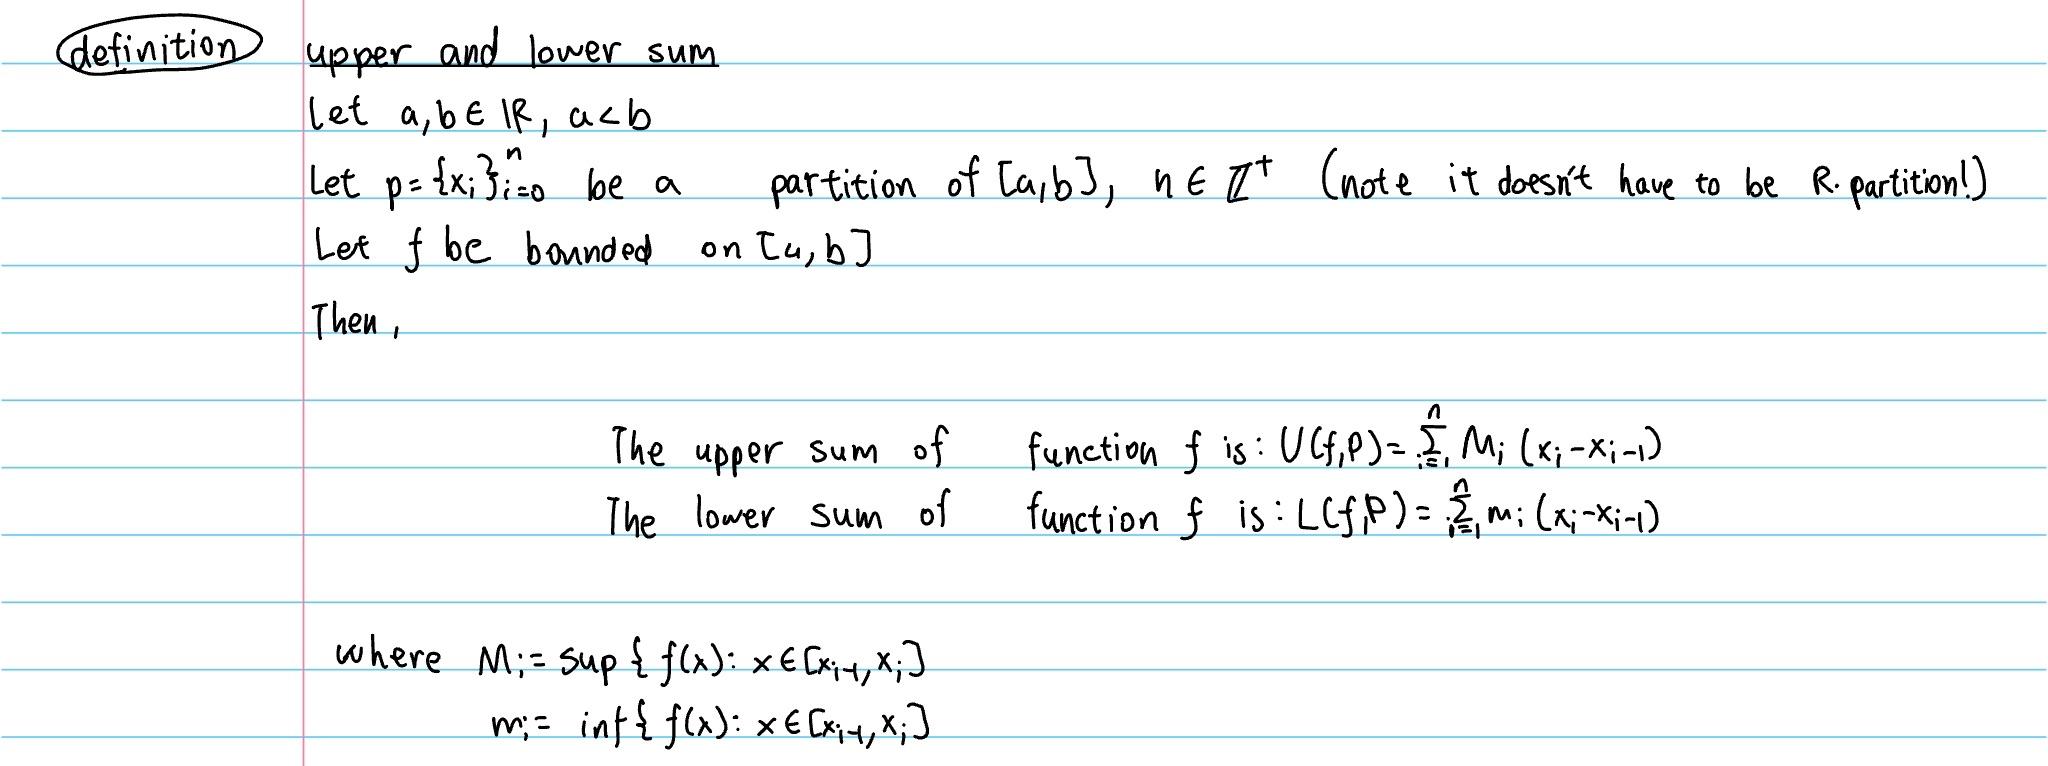 definition upper and lower sum
Let a,b ∈ ℝ, a<b
Let p = {xᵢ}ⁿᵢ₌₀ be a partition of [a,b], n ∈ ℤ⁺ (note it doesn't have to be R. partition!)
Let f be bounded on [a,b]
Then,
The upper sum of function f is: U(f,P) = ∑ⁿᵢ₌₁ Mᵢ (xᵢ-xᵢ₋₁)
The lower sum of function f is: L(f,P) = ∑ⁿᵢ₌₁ mᵢ (xᵢ-xᵢ₋₁)
where Mᵢ = sup { f(x): x ∈ [xᵢ₋₁, xᵢ]
mᵢ = inf { f(x): x ∈ [xᵢ₋₁, xᵢ]